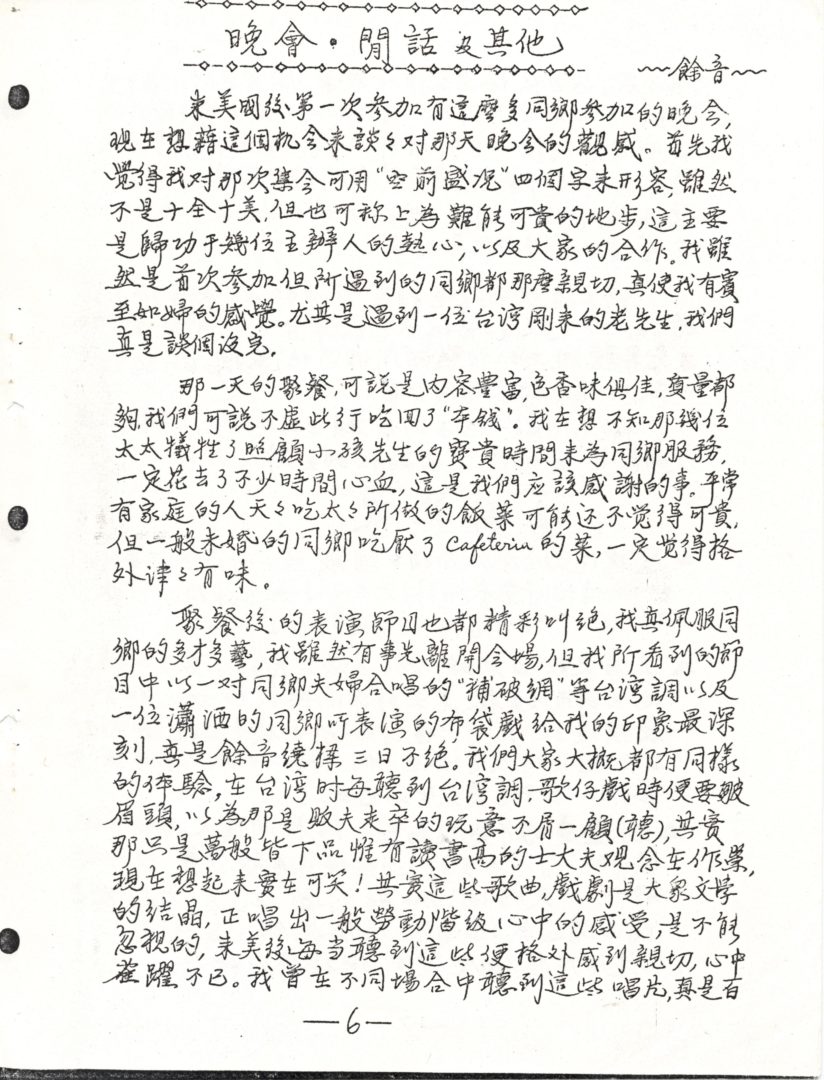 晚會·閒話及其他
~~餘音~~
來美國後第一次參加有這麼多同鄉參加的晚会,
现在想藉這個机会来談々对那天晚会的觀感。首先我
覺得我对那次集会可用"空前盛况"四個字来形容,雖然
不是十全十美,但也可称上為難能可貴的地步,這主要
是歸功于幾位主辦人的熱心,以及大家的合作。我雖
然是首次参加但所遇到的同鄉都那麼親切,真使我有賓
至如婦的感覺。尤其是遇到一位台湾剛来的老先生,我們
真是談個没完.
那一天的聚餐,可説是内容豐富,色香味俱佳,質量都
夠,我們可說不虚此行吃回了"本钱"。我在想不知那幾位
太太犧牲了照顧小孩先生的寶貴時間来為同鄉服務,
一定花去了不少時間心血,這是我們应該感謝的事。平常
有家庭的人天々吃太々所做的飯菜可能还不觉得可貴,
但一般未婚的同鄉吃厭了Cafeteria的菜,一定觉得格
外津々有味。
聚餐後的表演節目也都精彩叫绝,我真佩服同
鄉的多才多藝,我雖然有事先離開会場,但我所看到的節
目中以一对同鄉夫婦合唱的"補破網"等台湾調以及
一位瀟洒的同鄉所表演的布袋戲給我的印象最深
刻,真是餘音繞樑三日不绝。我們大家大概都有同樣
的体驗,在台湾时每聽到台湾調,歌仔戲時便要皺
眉頭,以為那是販夫走卒的玩意不屑一顧(聽),其實
那只是萬般皆下品惟有讀書高的士大夫观念在作祟,
現在想起来實在可笑!其實這些歌曲,戲劇是大眾文學
的结晶,正唱出一般勞動階级心中的感受,是不能
忽視的,来美後每当聽到這些便格外感到親切,心中
雀躍不已。我曾在不同場合中聽到這些唱片,真是百
—6—